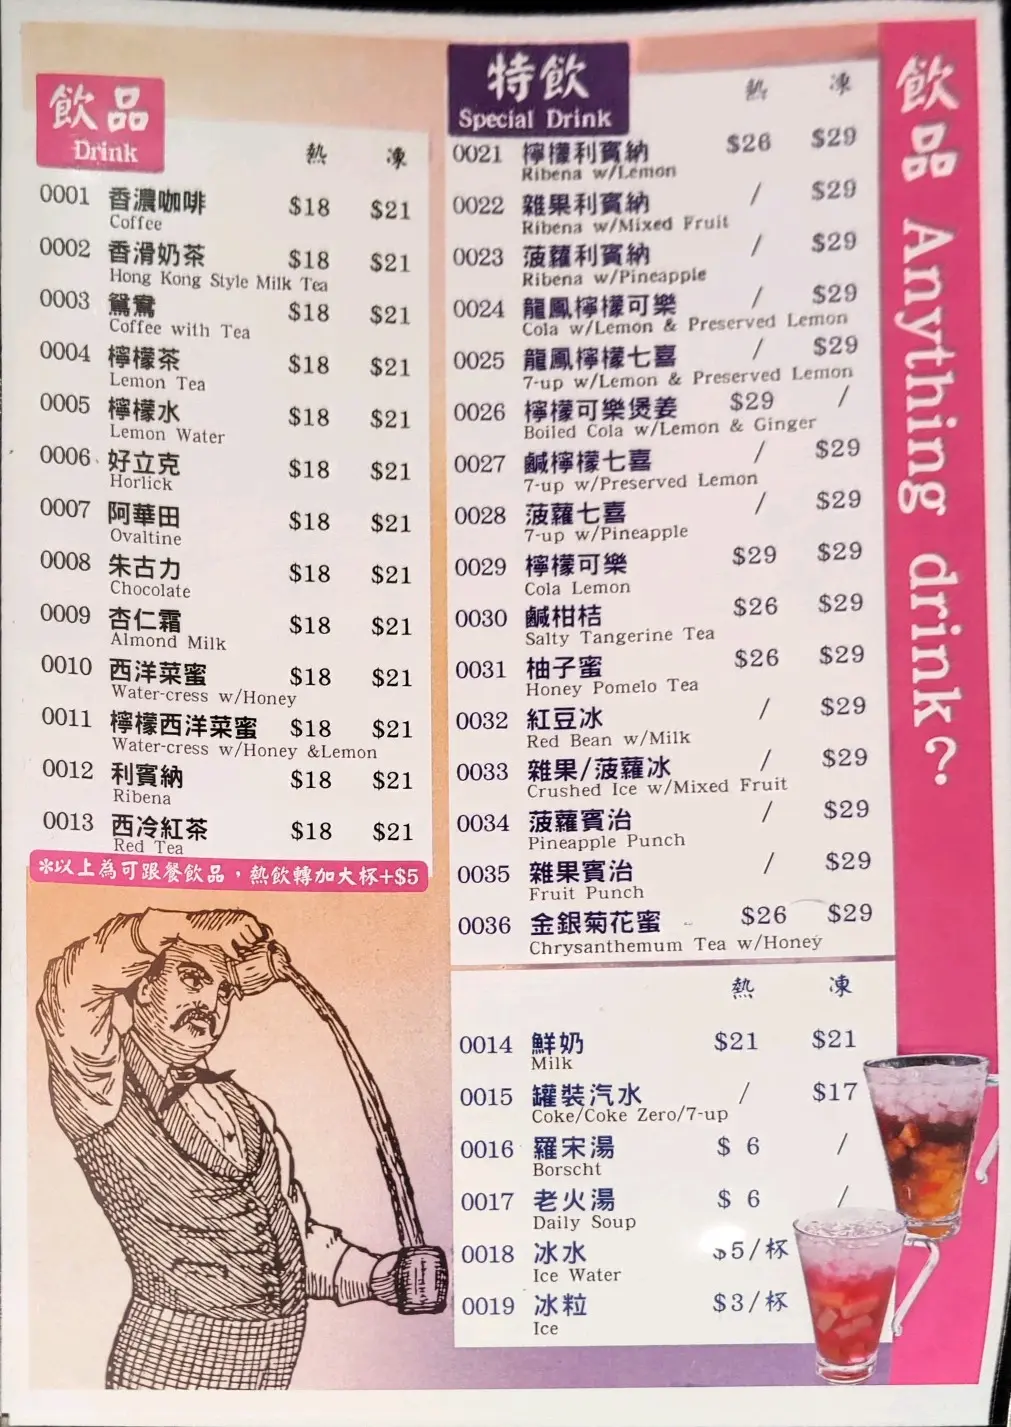 飲品
Drink
熱 凍
0001 香濃咖啡 $18 $21
Coffee
0002 香滑奶茶 $18 $21
Hong Kong Style Milk Tea
0003 鴛鴦 $18 $21
Coffee with Tea
0004 檸檬茶 $18 $21
Lemon Tea
0005 檸檬水 $18 $21
Lemon Water
0006 好立克 $18 $21
Horlick
0007 阿華田 $18 $21
Ovaltine
0008 朱古力 $18 $21
Chocolate
0009 杏仁霜 $18 $21
Almond Milk
0010 西洋菜蜜 $18 $21
Water-cress w/Honey
0011 檸檬西洋菜蜜 $18 $21
Water-cress w/Honey &Lemon
0012 利賓納 $18 $21
Ribena
0013 西冷紅茶 $18 $21
Red Tea
*以上為可跟餐飲品，熱飲轉加大杯+$5
特飲
Special Drink
熱 凍
0021 檸檬利賓納 $26 $29
Ribena w/Lemon
0022 雜果利賓納 / $29
Ribena w/Mixed Fruit
0023 菠蘿利賓納 / $29
Ribena w/Pineapple
0024 龍鳳檸檬可樂 / $29
Cola w/Lemon & Preserved Lemon
0025 龍鳳檸檬七喜 / $29
7-up w/Lemon & Preserved Lemon
0026 檸檬可樂煲姜 $29 /
Boiled Cola w/Lemon & Ginger
0027 鹹檸檬七喜 / $29
7-up w/Preserved Lemon
0028 菠蘿七喜 / $29
7-up w/Pineapple
0029 檸檬可樂 $29 $29
Cola Lemon
0030 鹹柑桔 $26 $29
Salty Tangerine Tea
0031 柚子蜜 $26 $29
Honey Pomelo Tea
0032 紅豆冰 / $29
Red Bean w/Milk
0033 雜果/菠蘿冰 / $29
Crushed Ice w/Mixed Fruit
0034 菠蘿賓治 / $29
Pineapple Punch
0035 雜果賓治 / $29
Fruit Punch
0036 金銀菊花蜜 $26 $29
Chrysanthemum Tea w/Honey
熱 凍
0014 鮮奶 $21 $21
Milk
0015 罐裝汽水 / $17
Coke/Coke Zero/7-up
0016 羅宋湯 $ 6 /
Borscht
0017 老火湯 $ 6 /
Daily Soup
0018 冰水 $5/杯
Ice Water
0019 冰粒 $3/杯
Ice
飲品 Anything drink?